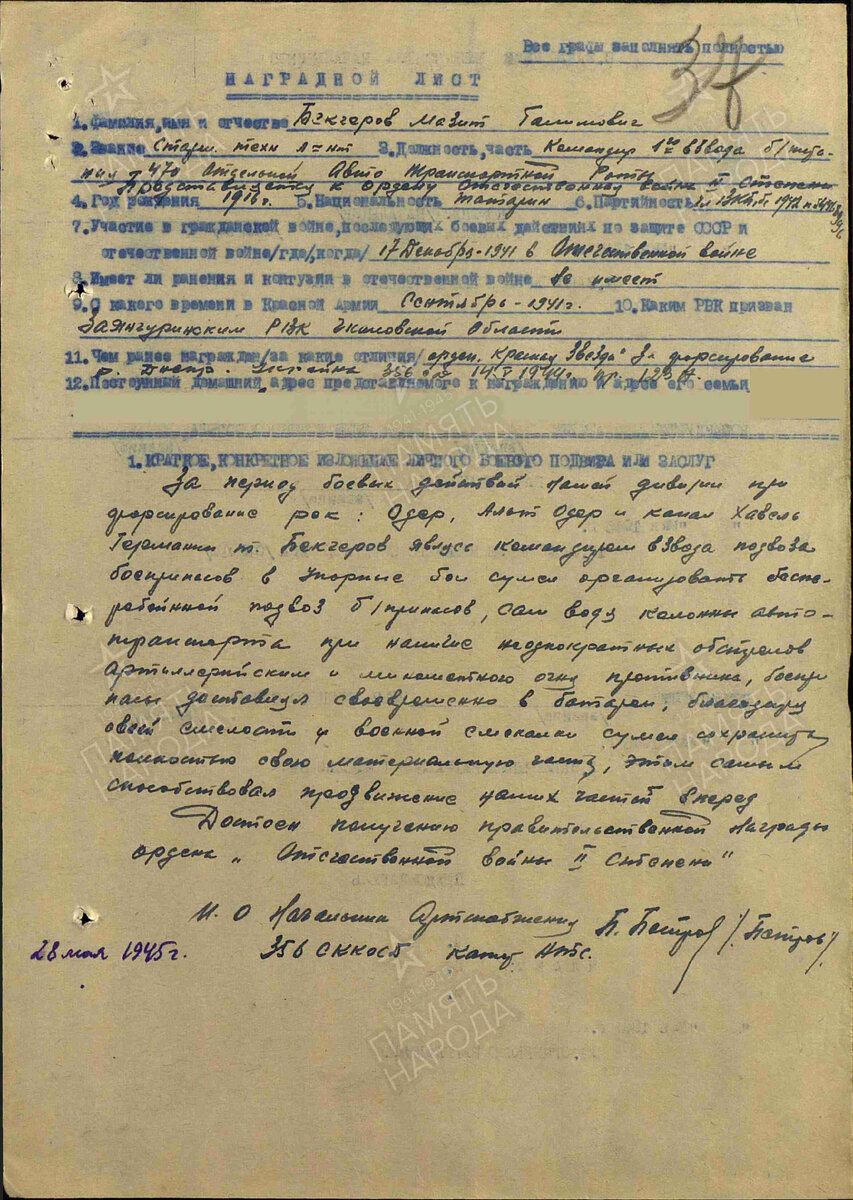 Все графы заполнять полностью
37
НАГРАДНОЙ ЛИСТ
1. Фамилия, имя и отчество Бекчеров Мазит Галимович
2. Звание Старш. техн л-нт 3. Должность, часть Командир 1го взвода б/пита-
ния 470 Отдельной Авто Транспортной Роты
Представляется к ордену Отечественной войны II Степени
4. Год рождения 1916 г. 5. Национальность татарин 6. Партийность ВКП/б 1942
7. Участие в гражданской войне, последующих боевых действиях по защите СССР и
отечественной войне/где, когда/ 17 Декабря-1941 в Отечественной войне
8. Имеет ли ранения и контузии в отечественной войне не имеет
9. С какого времени в Красной Армии Сентябрь-1941 г. 10. Каким РВК призван
Заянчуринским РВК Чкаловской Области
11. Чем ранее награжден/за какие отличия/ орден. Красная Звезда" За форсирование
р. Днепр. Украина 356 сд 1944г. пр. 129
12. Постоянный домашний адрес представляемого к награждению и адрес его семьи
1. КРАТКОЕ, КОНКРЕТНОЕ ИЗЛОЖЕНИЕ ЛИЧНОГО БОЕВОГО ПОДВИГА ИЛИ ЗАСЛУГ
За период боевых действий нашей дивизии при
форсирование рек: Одер, Альт Одер и канал Хавель
Германии т. Бекчеров явлусь командиром взвода подвоза
боеприпасов в упорные бои сумел организовать беспе-
ребойной подвоз б/припасов, сам водя колонны авто-
транспорта при наличие неоднократных обстрелов
Артиллерийским и минометного огня противника, боепри
пасы доставлял своевременно в батареи, благодаря
своей смелости и военной смекалки сумел сохранить
полностью свою материальную часть, этим самым
способствовал продвижение наших частей вперед
Достоен получению правительственной Награды
ордена „Отечественной войны II Степени"
И.О Начальника Артснабжения П. Петров /Петров/
28 мая 1945 г. 356 СККОСД
ПАМЯТЬ НАРОДА